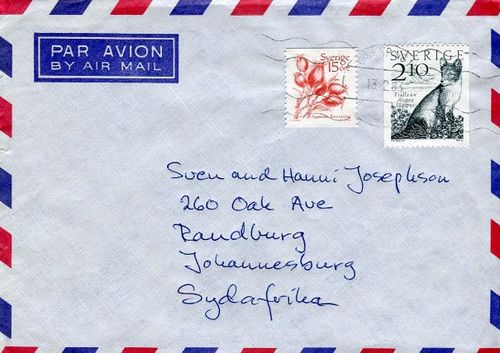 PAR AVION
BY AIR MAIL
Sverige
15 öre
SVERIGE
2.10
Fjällräv
Alopex
lagopus
Sven and Hanni Josephson
260 Oak Ave
Randburg
Johannesburg
Sydafrika